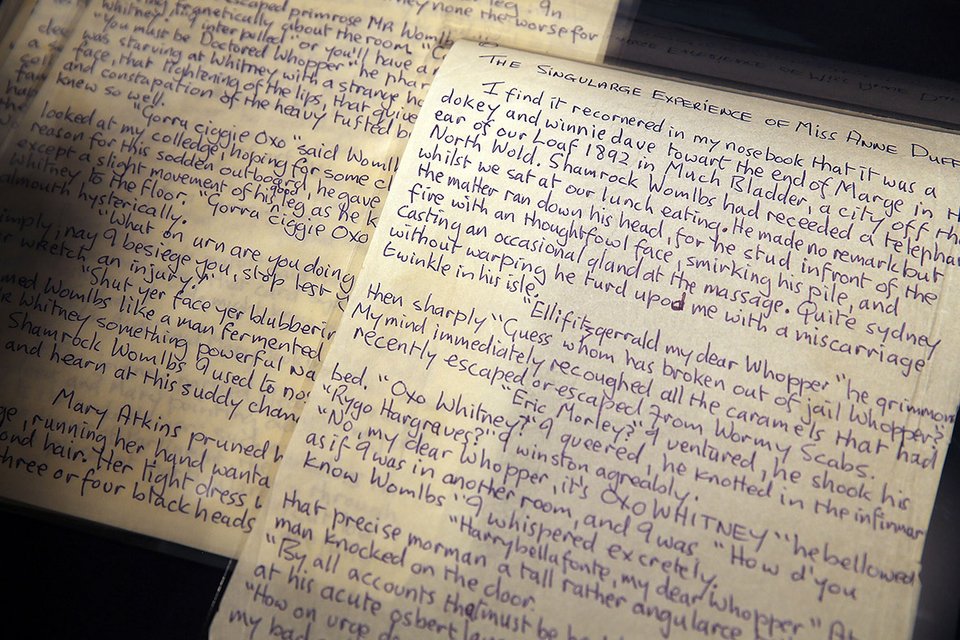 escaped primrose Mr Womlbs
whitney, magnetically about the room
"you interpolled" or you'll have a
"You must be Doctored Whopper" he
was starving at Whitney with a strange
face, that tightening of the lips, that
and constapation of the heavy tufted
knew so well.
"Gorra ciggie Oxo" said Womlbs
looked at my colledge, hoping for some
reason for this sodden outboard, he gave
except a slight movement of his good leg as he
Whitney to the floor. "Gorra ciggie Oxo
almouth hysterically.
"What on urn are you doing
imply; nay I besiege you, stop lest
wretch an injury."
"Shut yer face yer blubberin
med Womlbs like a man fermented
Whitney something powerful
Shamrock Womlbs I used to
and hearn at this suddy
Mary Atkins pruned
running her hand
ond hair. Her tight dress
three or four blackheads
THE SINGULARGE EXPERIENCE OF MISS ANNE DUFF
I find it recornered in my nosebook that it was a
dokey and winnie dave towart the end of Marge in the
ear of our Loaf 1892 in Much Bladder, a city off the
North Wold. Shamrock Womlbs had receeded a telephan
whilst we sat at our lunch eating. He made no remark but
the matter ran down his head, for he stud infront of the
fire with an thoughtfowl face, smirking his pile, and
Casting an occasional gland at the massage. Quite sydney
without warping he turd upod me with a miscarriage
twinkle in his isle.
"Ellifitzgerrald my dear Whopper" he grimmon
then sharply "Guess whom has broken out of jail Whopper?"
My mind immediately recoughed all the caramels that had
recently escaped or escaped from Wormy Scabs.
"Eric Morley?" I ventured, he shook his
bed. "Oxo Whitney?" I queered, he knotted in the infirmar
"Rygo Hargraves?" I winston agreably.
"No, my dear Whopper, it's OXO WHITNEY" he bellowed
as if I was in another room, and I was. "How d'you
know Womlbs" I whispered excretely.
"Harrybellafonte, my dear Whopper" At
that precise morman a tall rather angularce
man knocked on the door.
"By all accounts that must be
at his acute osbert
"How on urge
my